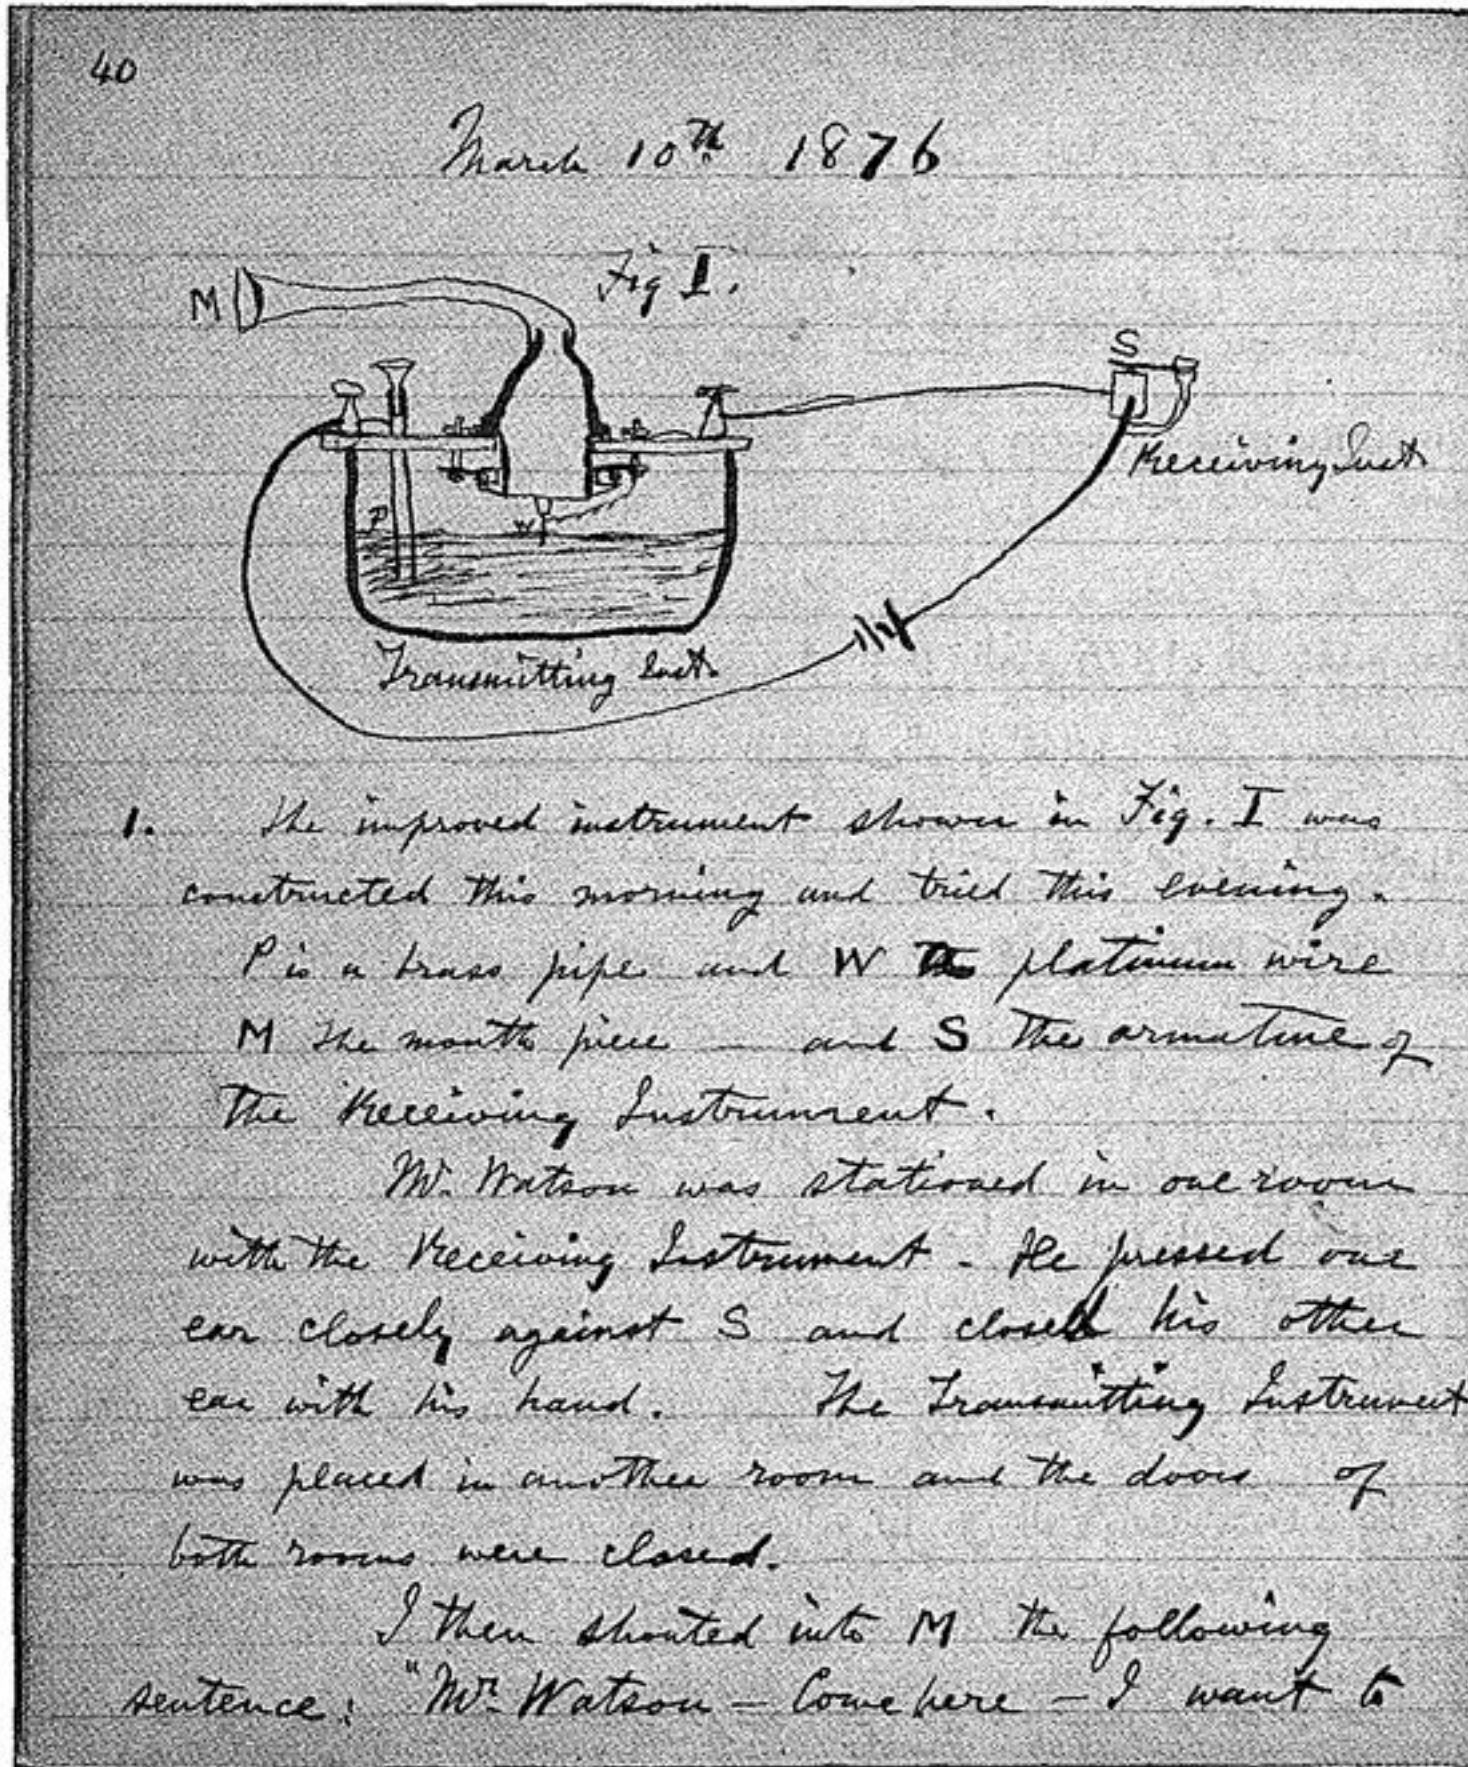 40
March 10th 1876
Fig I.
M
S
Receiving Inst.
P
W
Transmitting Inst.
1. The improved instrument shown in Fig. I was
constructed this morning and tried this evening.
P is a brass pipe and W the platinum wire
M the mouth piece — and S the armature of
the Receiving Instrument.
Mr. Watson was stationed in one room
with the Receiving Instrument - He pressed one
ear closely against S and closed his other
ear with his hand. The Transmitting Instrument
was placed in another room and the doors of
both rooms were closed.
I then shouted into M the following
sentence: "Mr. Watson — Come here — I want to